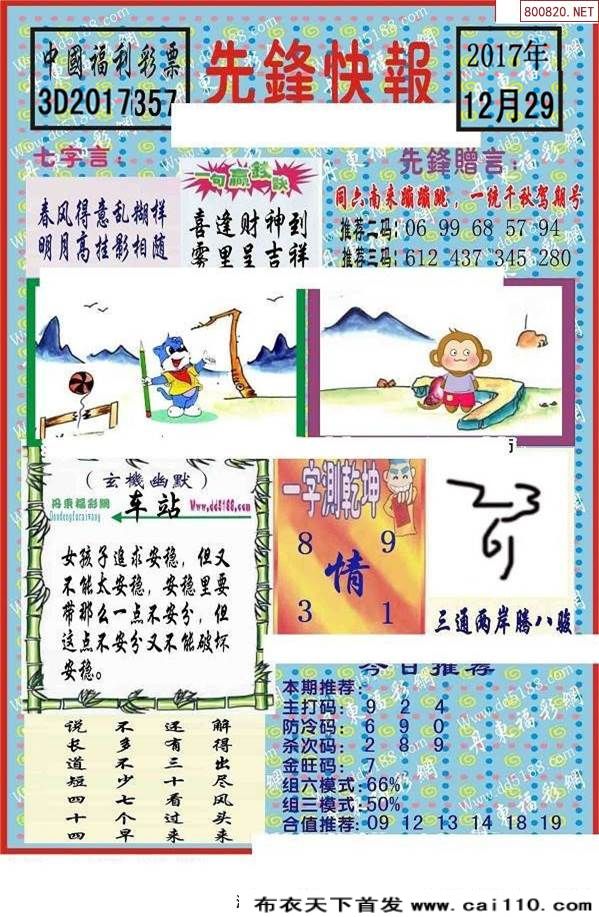 800820.NET
中國福利彩票
3D2017357
先鋒快報
2017年
12月29
七字言：
春风得意乱糊样
明月高挂影相随
一句赢钱诀
喜逢财神到
雾里呈吉祥
先鋒贈言：
同六南来蹦蹦跳，一统千秋驾期号
推荐二码：06 99 68 57 94
推荐三码：612 437 345 280
（玄機幽默）
丹東福彩網
Dandongfucaiwang
车站
Www.dd5188.com
女孩子追求安稳，但又
不能太安稳，安稳里要
带那么一点不安分，但
这点不安分又不能破坏
安稳。
一字测乾坤
8 9
情
3 1
2 3
6 1
三通两岸腾八骏
今日推荐
本期推荐：
主打码：9 2 4
防冷码：6 9 0
杀次码：2 8 9
金旺码：7
组六模式：66%
组三模式：50%
合值推荐：09 12 13 14 18 19
说长道短四十四
不多不少七个早
还有三十看过来
解得出尽风头来
布衣天下首发 www.cai110.com